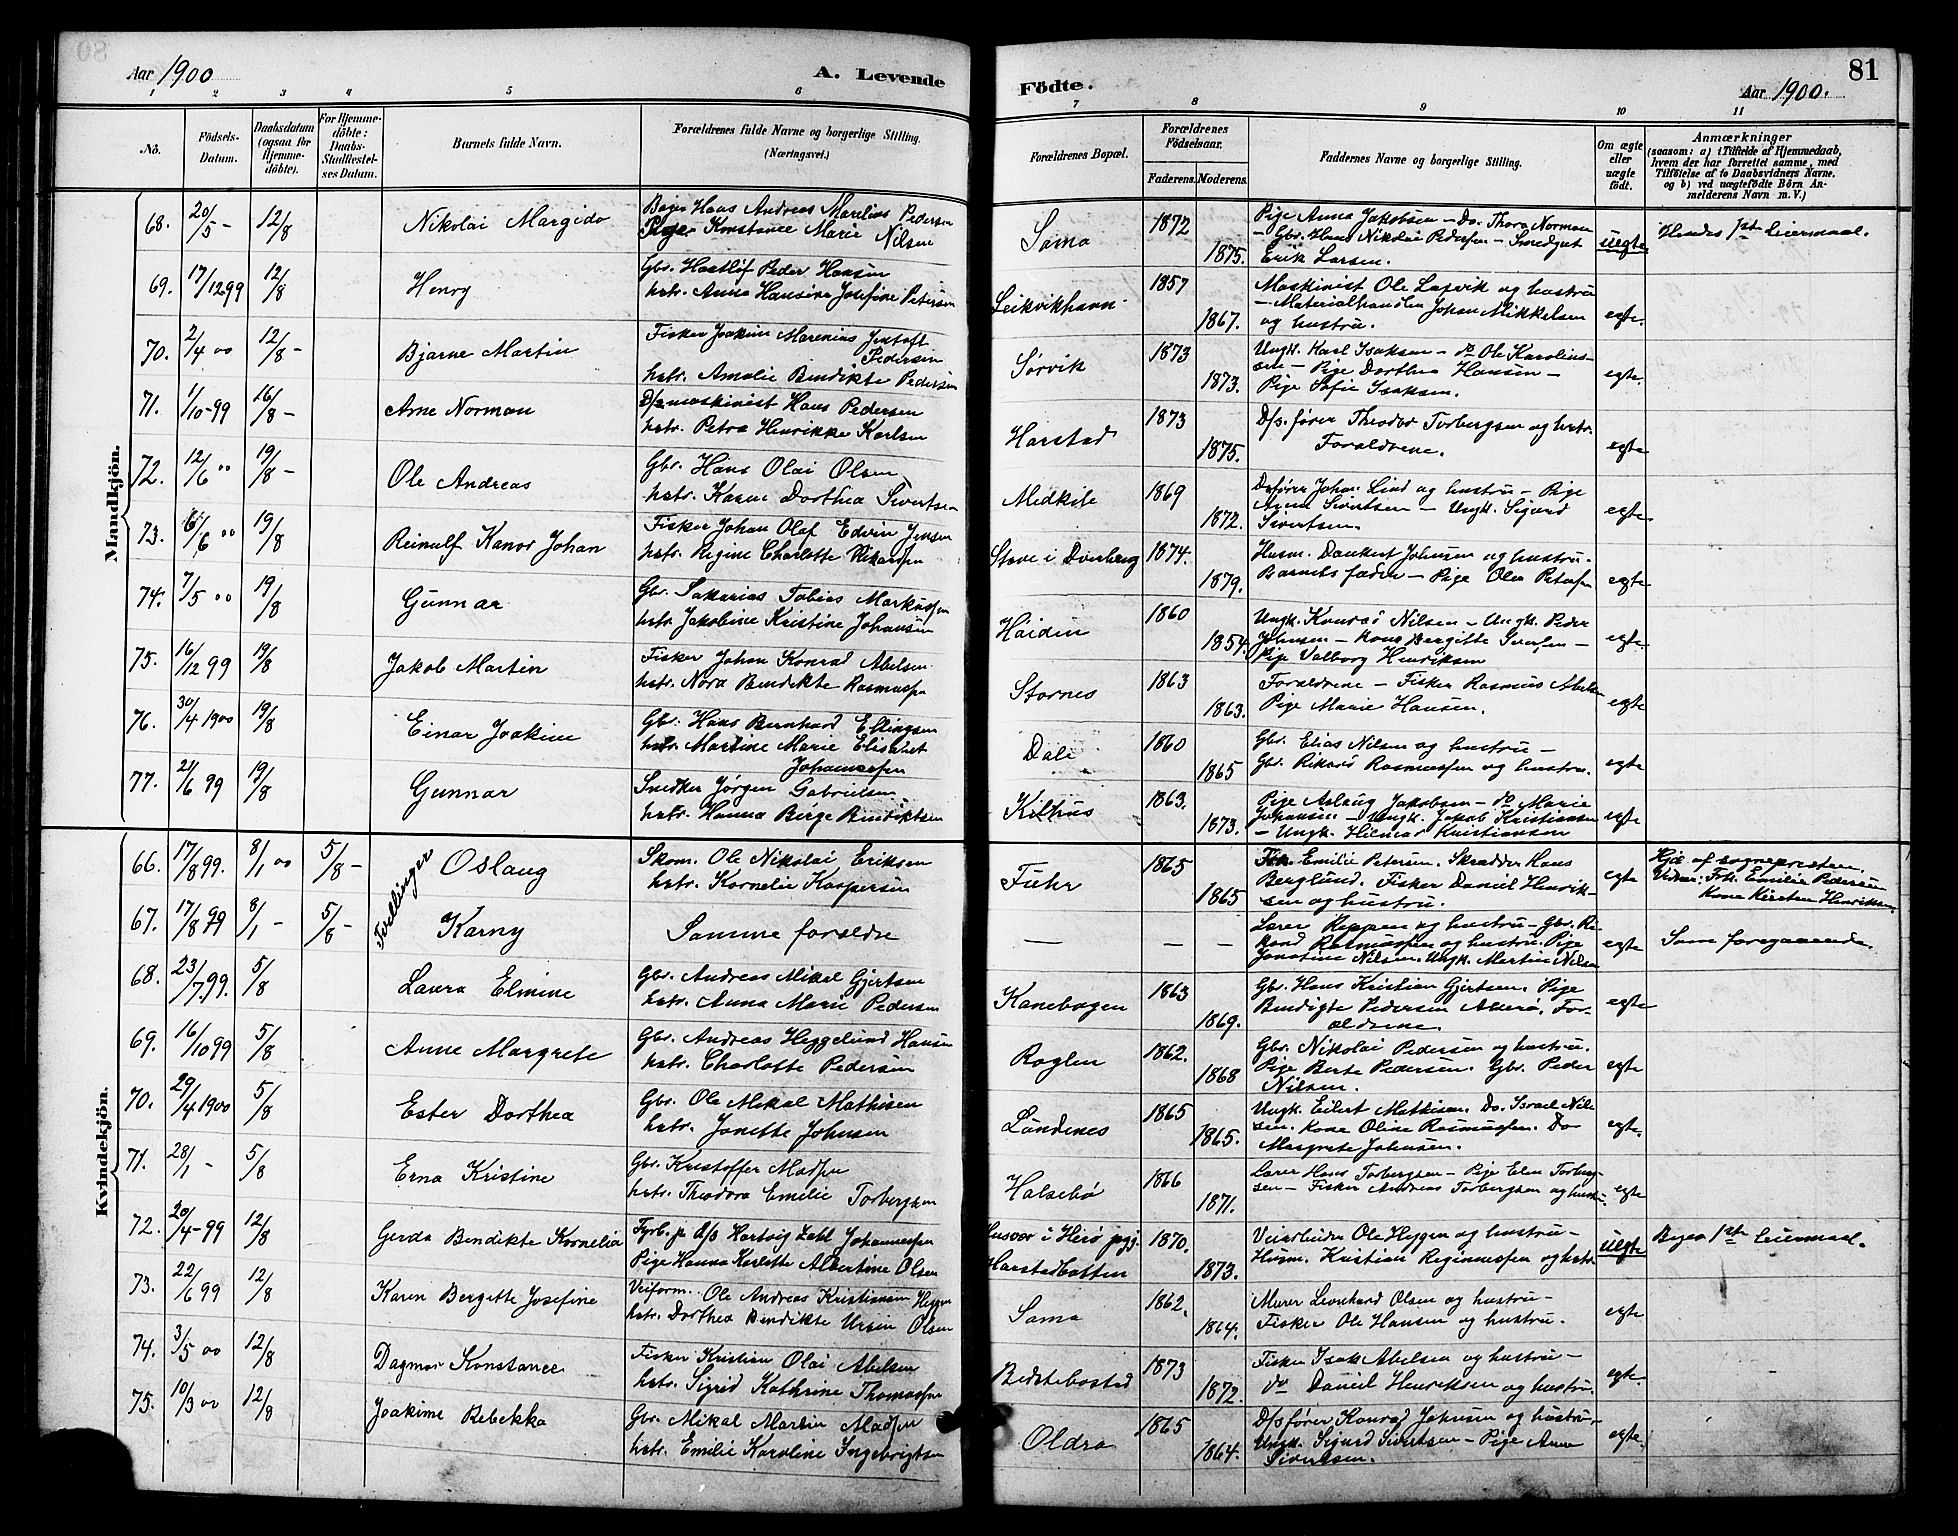 Aar 1900
A. Levende
Födte.
Aar 1900.
81
1 2 3 4 5 6 7 8 9 10 11
No.
Födsels-Datum.
Daabsdatum (ogsaa for Hjemmedöbte).
For Hjemmedöbte: Daabs-Stadfæstelses Datum.
Barnets fulde Navn.
Forældrenes fulde Navne og borgerlige Stilling. (Næringsvei.)
Forældrenes Bopæl.
Forældrenes Födselsaar.
Faderens. Moderens.
Faddernes Navne og borgerlige Stilling.
Om ægte eller uægte födt.
Anmærkninger
(saasom: a) i Tilfælde af Hjemmedaab,
hvem der har forrettet samme, med
Tilföielse af to Daabsvidners Navne,
og b) ved uægtefödte Börn An-
melderens Navn m. V.)
Mandkjön.
68. 20/5 - 12/8 Nikolai Margido
Hans Andreas Marelius Pedersen
Pige Konstance Marie Nilsen
Sama 1872 1875.
Pige Anna Jakobsen - Do. Thora Norman
- Gbr. Hans Nikolai Pedersen - Smedgut
Erik Larsen.
uegte
Hendes 1ste Leiermaal.
69. 17/12 99 12/8 Henry
Gbr. Hartlof Peder Hansen
hstr. Anna Hansine Josefine Petersen
Leikvikhavn 1857 1867.
Maskinist Ole Lapvik og hustru
- Materialhandler Johan Mikkelsen
og hustru.
egte.
70. 2/4 00 12/8 - Bjarne Martin
Fisker Joakim Marenius Jentoft
Pedersen
hstr. Amalie Bendikte Pedersen
Sørvik 1873 1873.
Ungk. Karl Isaksen - do Ole Karolius-
sen - Pige Dorthea Hansen -
Pige Sofie Isaksen.
egte.
71. 1/10-99 26/8 - Arne Norman
D/s maskinist Hans Pedersen
hstr. Petra Henrikke Karlsen
Harstad 1873 1875.
D/s. fører Theodor Torbergsen og hstr.
Forældrene.
egte
72. 12/6 00 19/8 - Ole Andreas
Gbr. Hans Olai Olsen
hstr. Karen Dorthea Sivertsen
Medkile 1869 1872.
Dsfører Johan Lind og hustru - Pige
Anna Sivertsen - Ungk. Sigurd
Sivertsen.
egte.
73. 6/6 00 19/8 Reinulf Kanor Johan
Fisker Johan Olaf Edvin Jensen
hstr. Regine Charlotte Rikardsen
Stave i Dverberg 1874. 1879.
Husm. Dankert Johnsen og hustru.
Barnets fader - Pige Olea Petersen
egte
74. 7/5 00 19/8 Gunnar
Gbr. Sakarias Tobias Markussen
hstr. Jakobine Kristine Johansen
Høiden 1860 1854.
Ungk. Konrad Nilsen - Ungk. Peder
Johnsen - Kone Bergitte Iversen -
Pige Valborg Henriksen
egte
75. 16/12 99 19/8 Jakob Martin
Fisker Johan Konrad Abelsen
hstr. Nora Bendikte Rasmussen
Stornes 1863 1863.
Forældrene - Fisker Rasmus Abelsen
Pige Marie Hansen.
egte
76. 30/4 1900 19/8 Einar Joakim
Gbr. Hans Bernhard Ellingsen
hstr. Martine Marie Elisabet
Johannessen
Dale 1860 1865
Gbr. Elias Nilsen og hustru -
Gbr. Rikard Rasmussen og hustru.
egte
77. 21/6 99 19/8 Gunnar
Snedker Jørgen Gabrielsen
hstr. Hanna Berge Bendiktsen
Kilhus 1863. 1873.
Pige Aslaug Jakobsen - do Marie
Johansen - Ungk. Jakob Kristiansen
- Ungk. Hilmar Kristiansen
egte
Kvindekjön.
Tvillinger
66. 17/8 99. 8/1 00 5/8 - Oslaug
Skom. Ole Nikolai Eriksen
hstr. Kornelie Kaspersen
Fuhr 1865 1865
Frk. Emilie Petersen. Skrædder Hans
Berglund. Fisker Daniel Henrik-
sen og hustru.
egte
Hjd. af sognepresten
Vidner: Frk. Emilie Pedersen
Kone Kirsten Henriksen.
67. 17/8 99 8/1 - 5/8 - Karny
Samme foreldre
Lærer Reppen og hustru - Gbr. Ri-
kard Rasmussen og hustru. Pige
Jonatine Nilsen. Ungk. Martin Nilsen
egte
Som foregaaende.
68. 23/7 99. 5/8 Laura Elmine
Gbr. Andreas Mikal Gjertsen
hstr. Anna Marie Pedersen
Kanebogen 1863 1869.
Gbr. Hans Kristian Gjertsen. Pige
Bendigte Pedersen Aker. For-
ældrene.
egte
69. 16/10 99 5/8 Anne Margrete
Gbr. Andreas Heggelund Hansen
hstr. Charlotte Pedersen
Roglen 1862. 1868
Gbr. Nikolai Pedersen og hustru.
Pige Berte Pedersen. Gbr. Peder
Nilsen.
egte
70. 29/4 1900 5/8 Ester Dorthea
Gbr. Ole Mikal Mathisen
hstr. Jonette Johnsen
Lundenes 1865 1865.
Ungk. Eilert Mathisen. Do. Israel Nil-
sen. Kone Oline Rasmussen. Do
Margrete Johnsen.
egte.
71. 28/1 - 5/8 Erna Kristine
Gbr. Kristoffer Madsen
hstr. Theodora Emilie Torbergsen
Halsebø 1866 1871.
Lærer Hans Torbergsen - Pige Elen Torberg-
sen - Fisker Andreas Torbergsen og hustru.
egte
72. 20/4-99 12/8 Gerda Bendikte Kornelia
Fyrb. på D/s Hartvig Zahl Johannessen
Pige Hanna Karlotte Albertine Olsen
Husvær i Herø pgj.
Harstadbotten 1870. 1873.
Veiarbeider Ole Heggen og hustru -
Husm. Kristian Reginiussen og hstr.
uegte
Begges 1ste Leiermaal.
73. 22/6 99 12/8 Karen Bergitte Josefine
Veiform. Ole Andreas Kristiansen Heggen
hstr. Dorthea Bendikte Ursin Olsen
Sama 1862. 1864.
Murer Leonhard Olsen og hustru -
Fisker Ole Hansen og hustru.
egte
74. 3/5 00 12/8 Dagmar Konstance
Fisker Kristian Olai Abelsen
hstr. Sigrid Kathrine Thomassen
Bedstebostad 1873 1872.
Fisker Isak Abelsen og hustru -
do Daniel Henriksen og hustru.
egte.
75. 10/3 00 12/8 Joakime Rebekka
Gbr. Mikal Martin Madsen
hstr. Emilie Karoline Ingebrigtsen
Oldra 1865 1864.
D/s fører Konrad Johnsen og hustru -
Ungk. Sigurd Sivertsen - Pige Anna
Sivertsen.
egte.